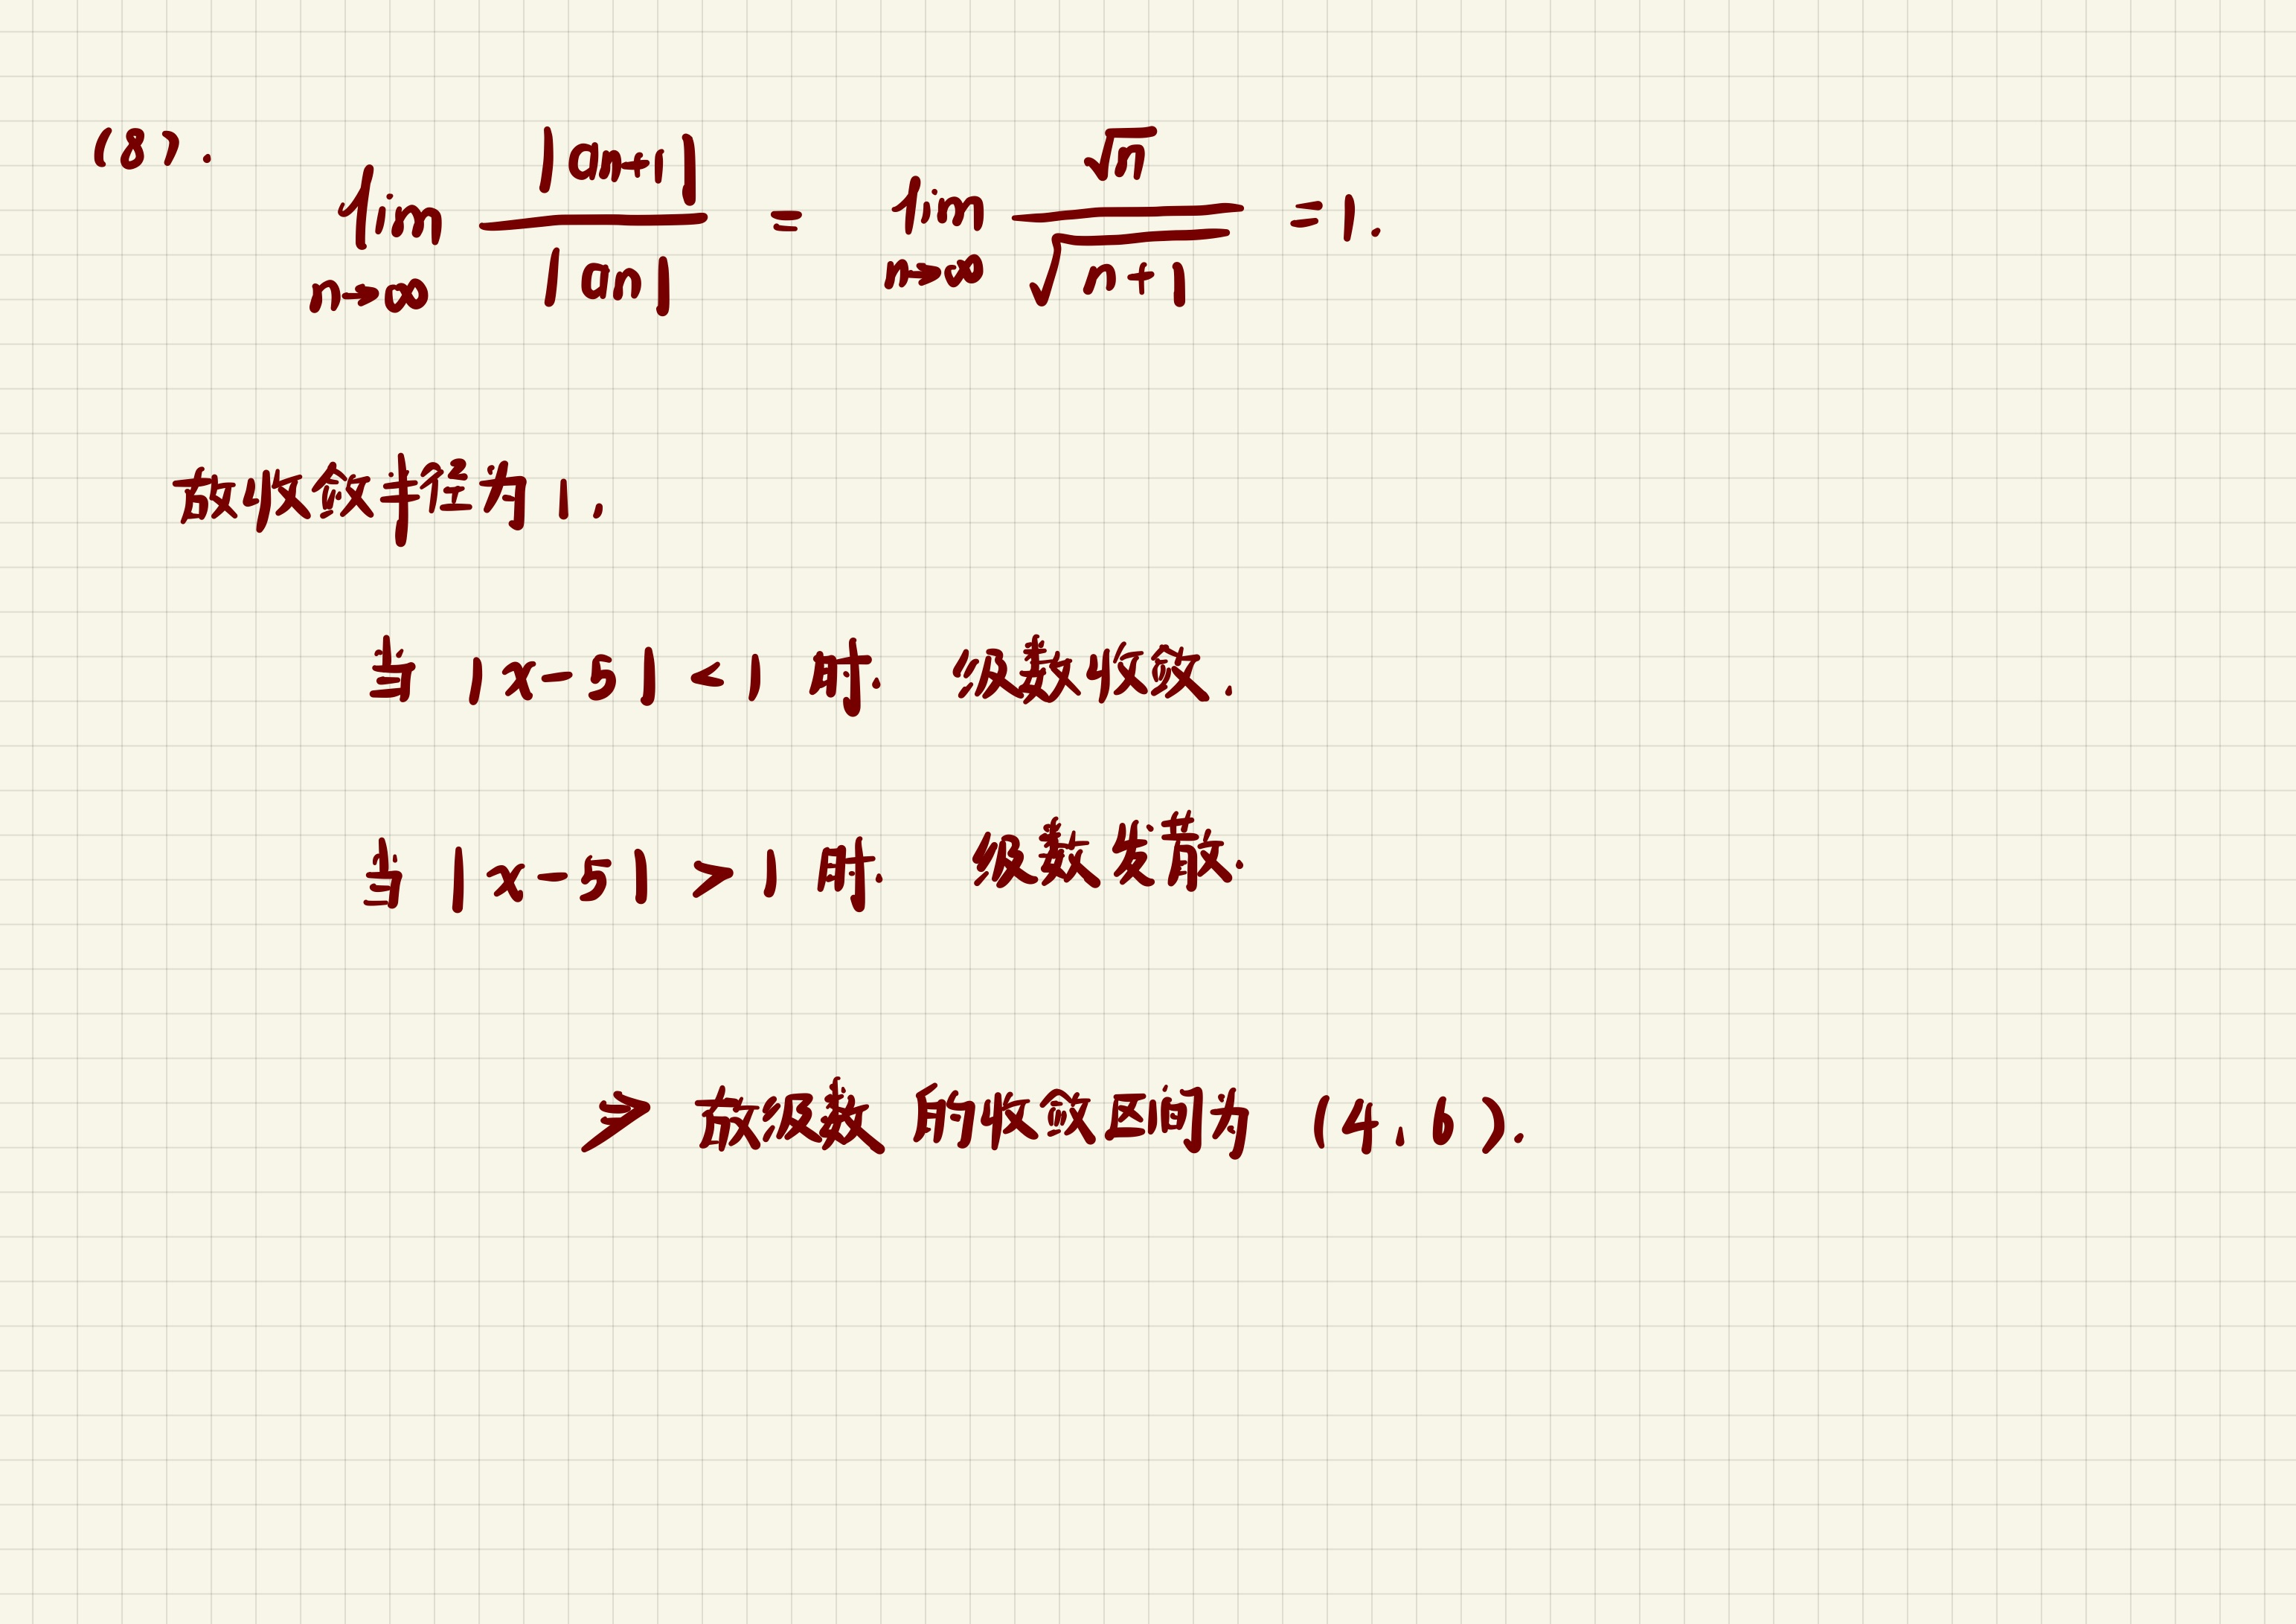 (8). lim n→∞ |an+1| / |an| = lim n→∞ √n / √(n+1) = 1.
故收敛半径为1,
当 |x-5| < 1 时. 级数收敛.
当 |x-5| > 1 时. 级数发散.
⇒ 故级数的收敛区间为 (4,6).